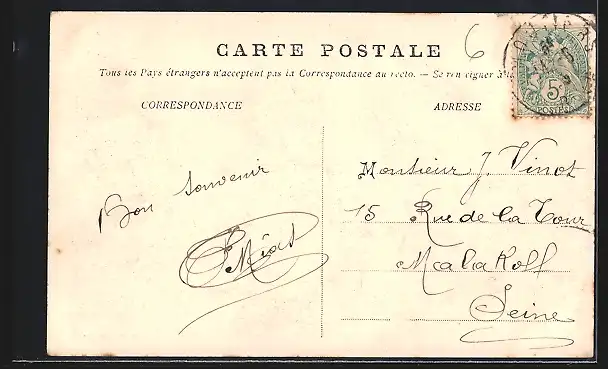 6
CARTE POSTALE
Tous les Pays étrangers n'acceptent pas la Correspondance au recto. — Se renseigner à la
CORRESPONDANCE
ADRESSE
5c
POSTES
Bon souvenir
Monsieur J. Vinot
15 Rue de la Tour
Malakoff
Seine